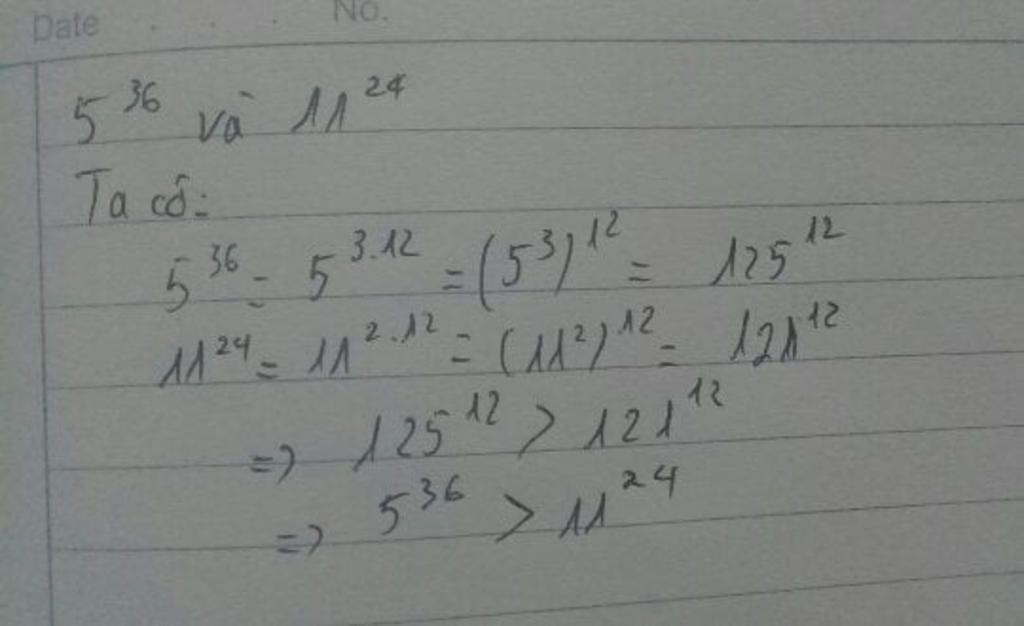 Date . . . No.
5^36 và 11^24
Ta có:
5^36 = 5^3.12 = (5^3)^12 = 125^12
11^24 = 11^2.12 = (11^2)^12 = 121^12
=> 125^12 > 121^12
=> 5^36 > 11^24